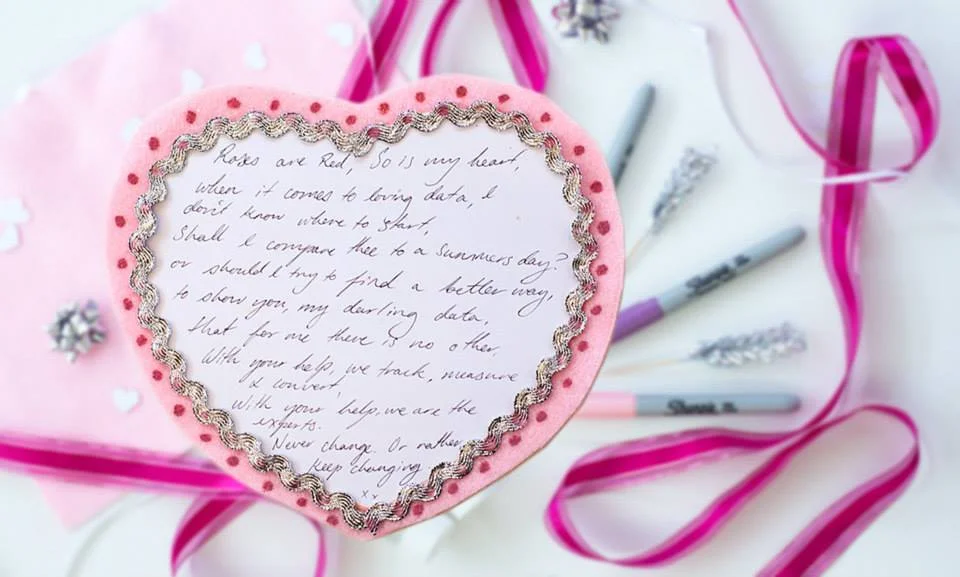 Roses are Red, So is my heart,
when it comes to loving data, I
don't know where to start,
Shall I compare thee to a summers day?
or should I try to find a better way,
to show you, my darling data,
that for me there is no other.
With your help, we track, measure
& convert
With your help, we are the
experts.
Never change. Or rather
keep changing.
xx
Sharpie
Sharpie